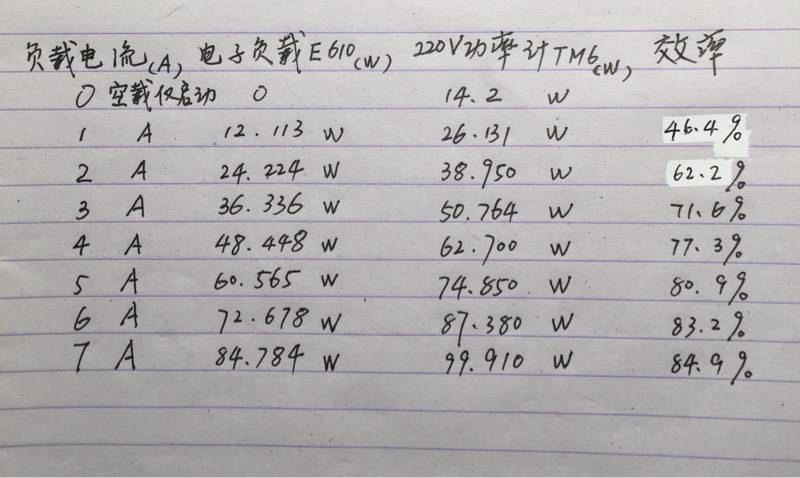 负载电流(A) 电子负载E610(W) 220V功率计TM6(W) 效率
0 空载仅启动 0 14.2 W
1 A 12.113 W 26.131 W 46.4%
2 A 24.224 W 38.950 W 62.2%
3 A 36.336 W 50.764 W 71.6%
4 A 48.448 W 62.700 W 77.3%
5 A 60.565 W 74.850 W 80.9%
6 A 72.678 W 87.380 W 83.2%
7 A 84.784 W 99.910 W 84.9%